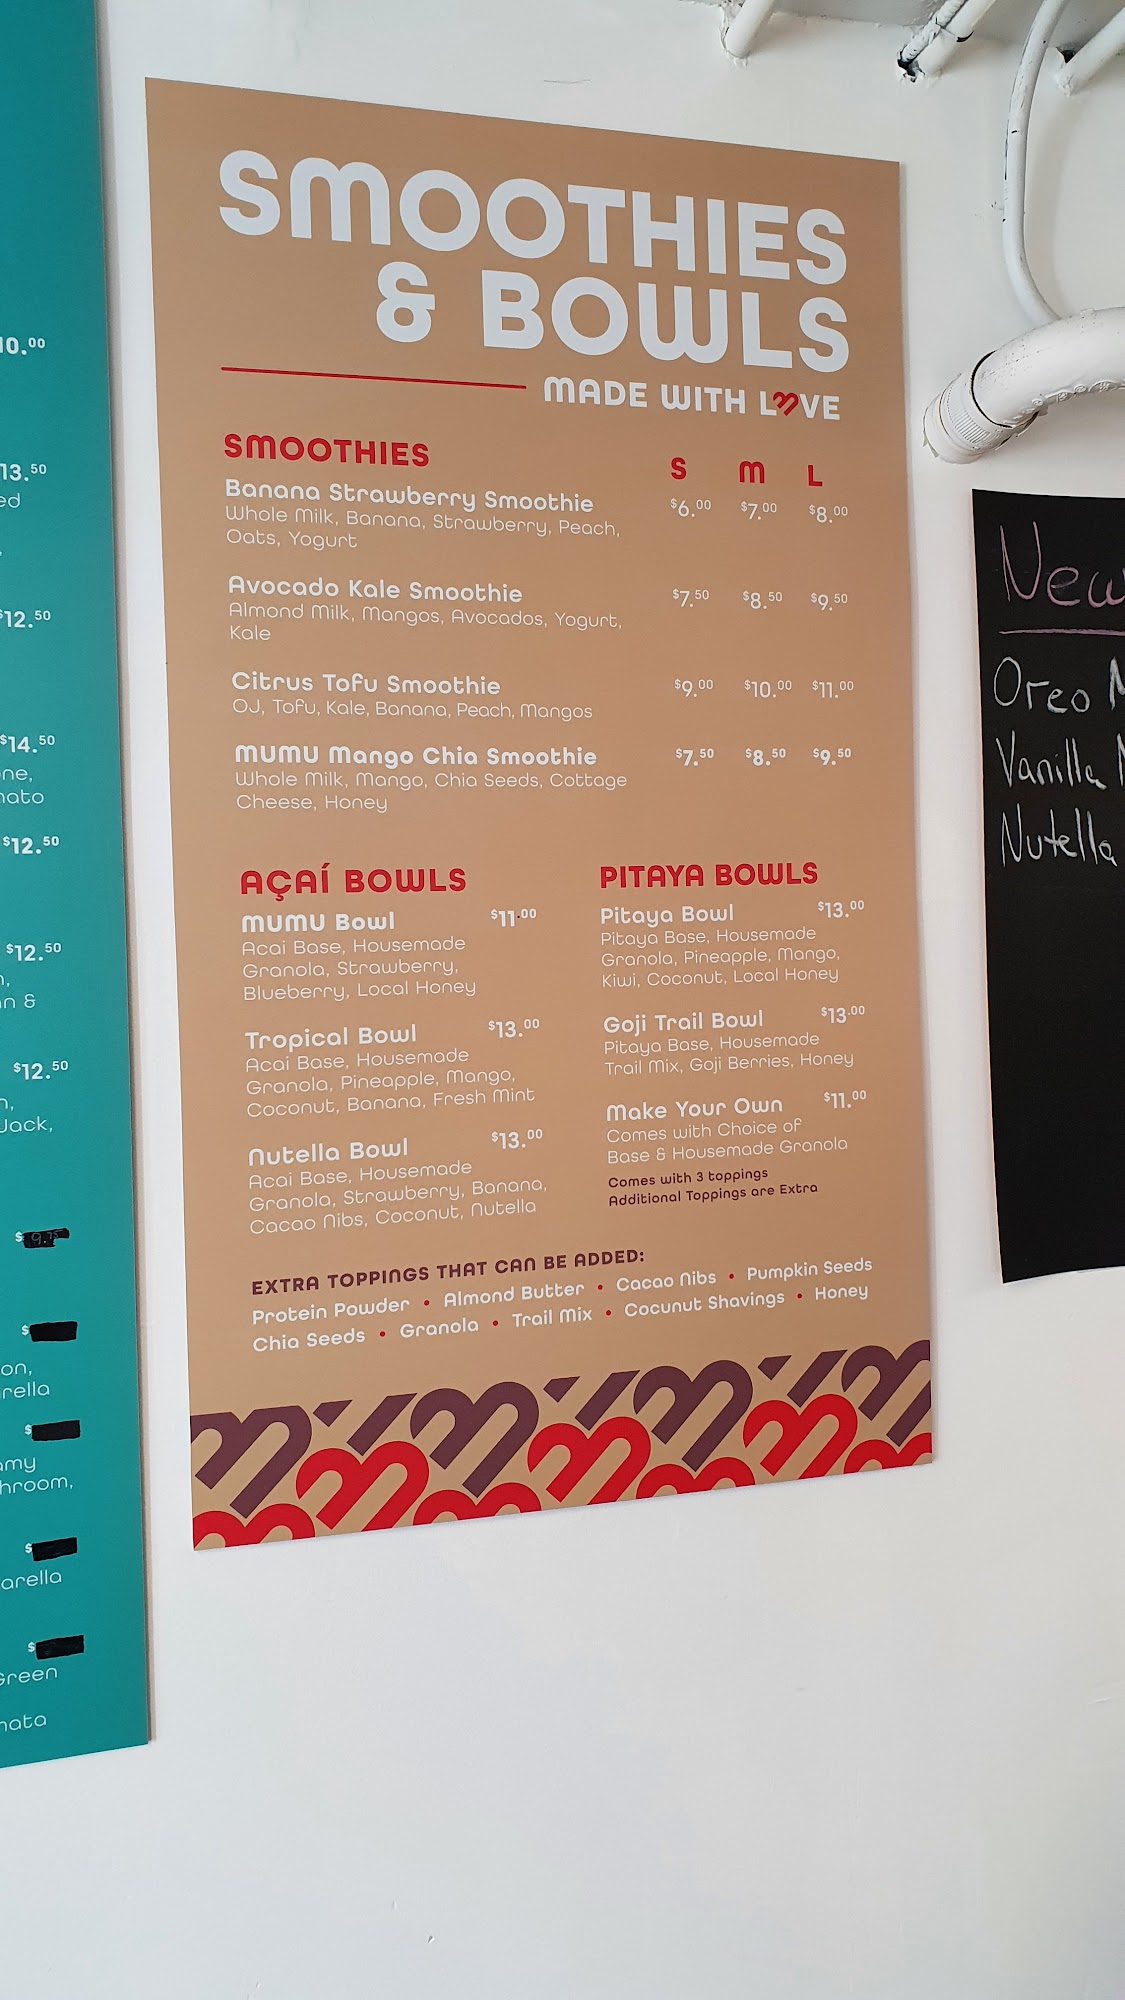 10.00
13.50
ed
$12.50
$14.50
one,
mato
$12.50
$12.50
n &
$12.50
Jack,
$9.75
$
on,
rella
$
amy
hroom,
$
arella
$
Green
mata
SMOOTHIES
& BOWLS
MADE WITH LOVE
SMOOTHIES S M L
Banana Strawberry Smoothie $6.00 $7.00 $8.00
Whole Milk, Banana, Strawberry, Peach,
Oats, Yogurt
Avocado Kale Smoothie $7.50 $8.50 $9.50
Almond Milk, Mangos, Avocados, Yogurt,
Kale
Citrus Tofu Smoothie $9.00 $10.00 $11.00
OJ, Tofu, Kale, Banana, Peach, Mangos
MUMU Mango Chia Smoothie $7.50 $8.50 $9.50
Whole Milk, Mango, Chia Seeds, Cottage
Cheese, Honey
AÇAÍ BOWLS
MUMU Bowl $11.00
Acai Base, Housemade
Granola, Strawberry,
Blueberry, Local Honey
Tropical Bowl $13.00
Acai Base, Housemade
Granola, Pineapple, Mango,
Coconut, Banana, Fresh Mint
Nutella Bowl $13.00
Acai Base, Housemade
Granola, Strawberry, Banana,
Cacao Nibs, Coconut, Nutella
PITAYA BOWLS
Pitaya Bowl $13.00
Pitaya Base, Housemade
Granola, Pineapple, Mango,
Kiwi, Coconut, Local Honey
Goji Trail Bowl $13.00
Pitaya Base, Housemade
Trail Mix, Goji Berries, Honey
Make Your Own $11.00
Comes with Choice of
Base & Housemade Granola
Comes with 3 toppings
Additional Toppings are Extra
EXTRA TOPPINGS THAT CAN BE ADDED:
Protein Powder • Almond Butter • Cacao Nibs • Pumpkin Seeds
Chia Seeds • Granola • Trail Mix • Cocunut Shavings • Honey
New
Oreo M
Vanilla
Nutella